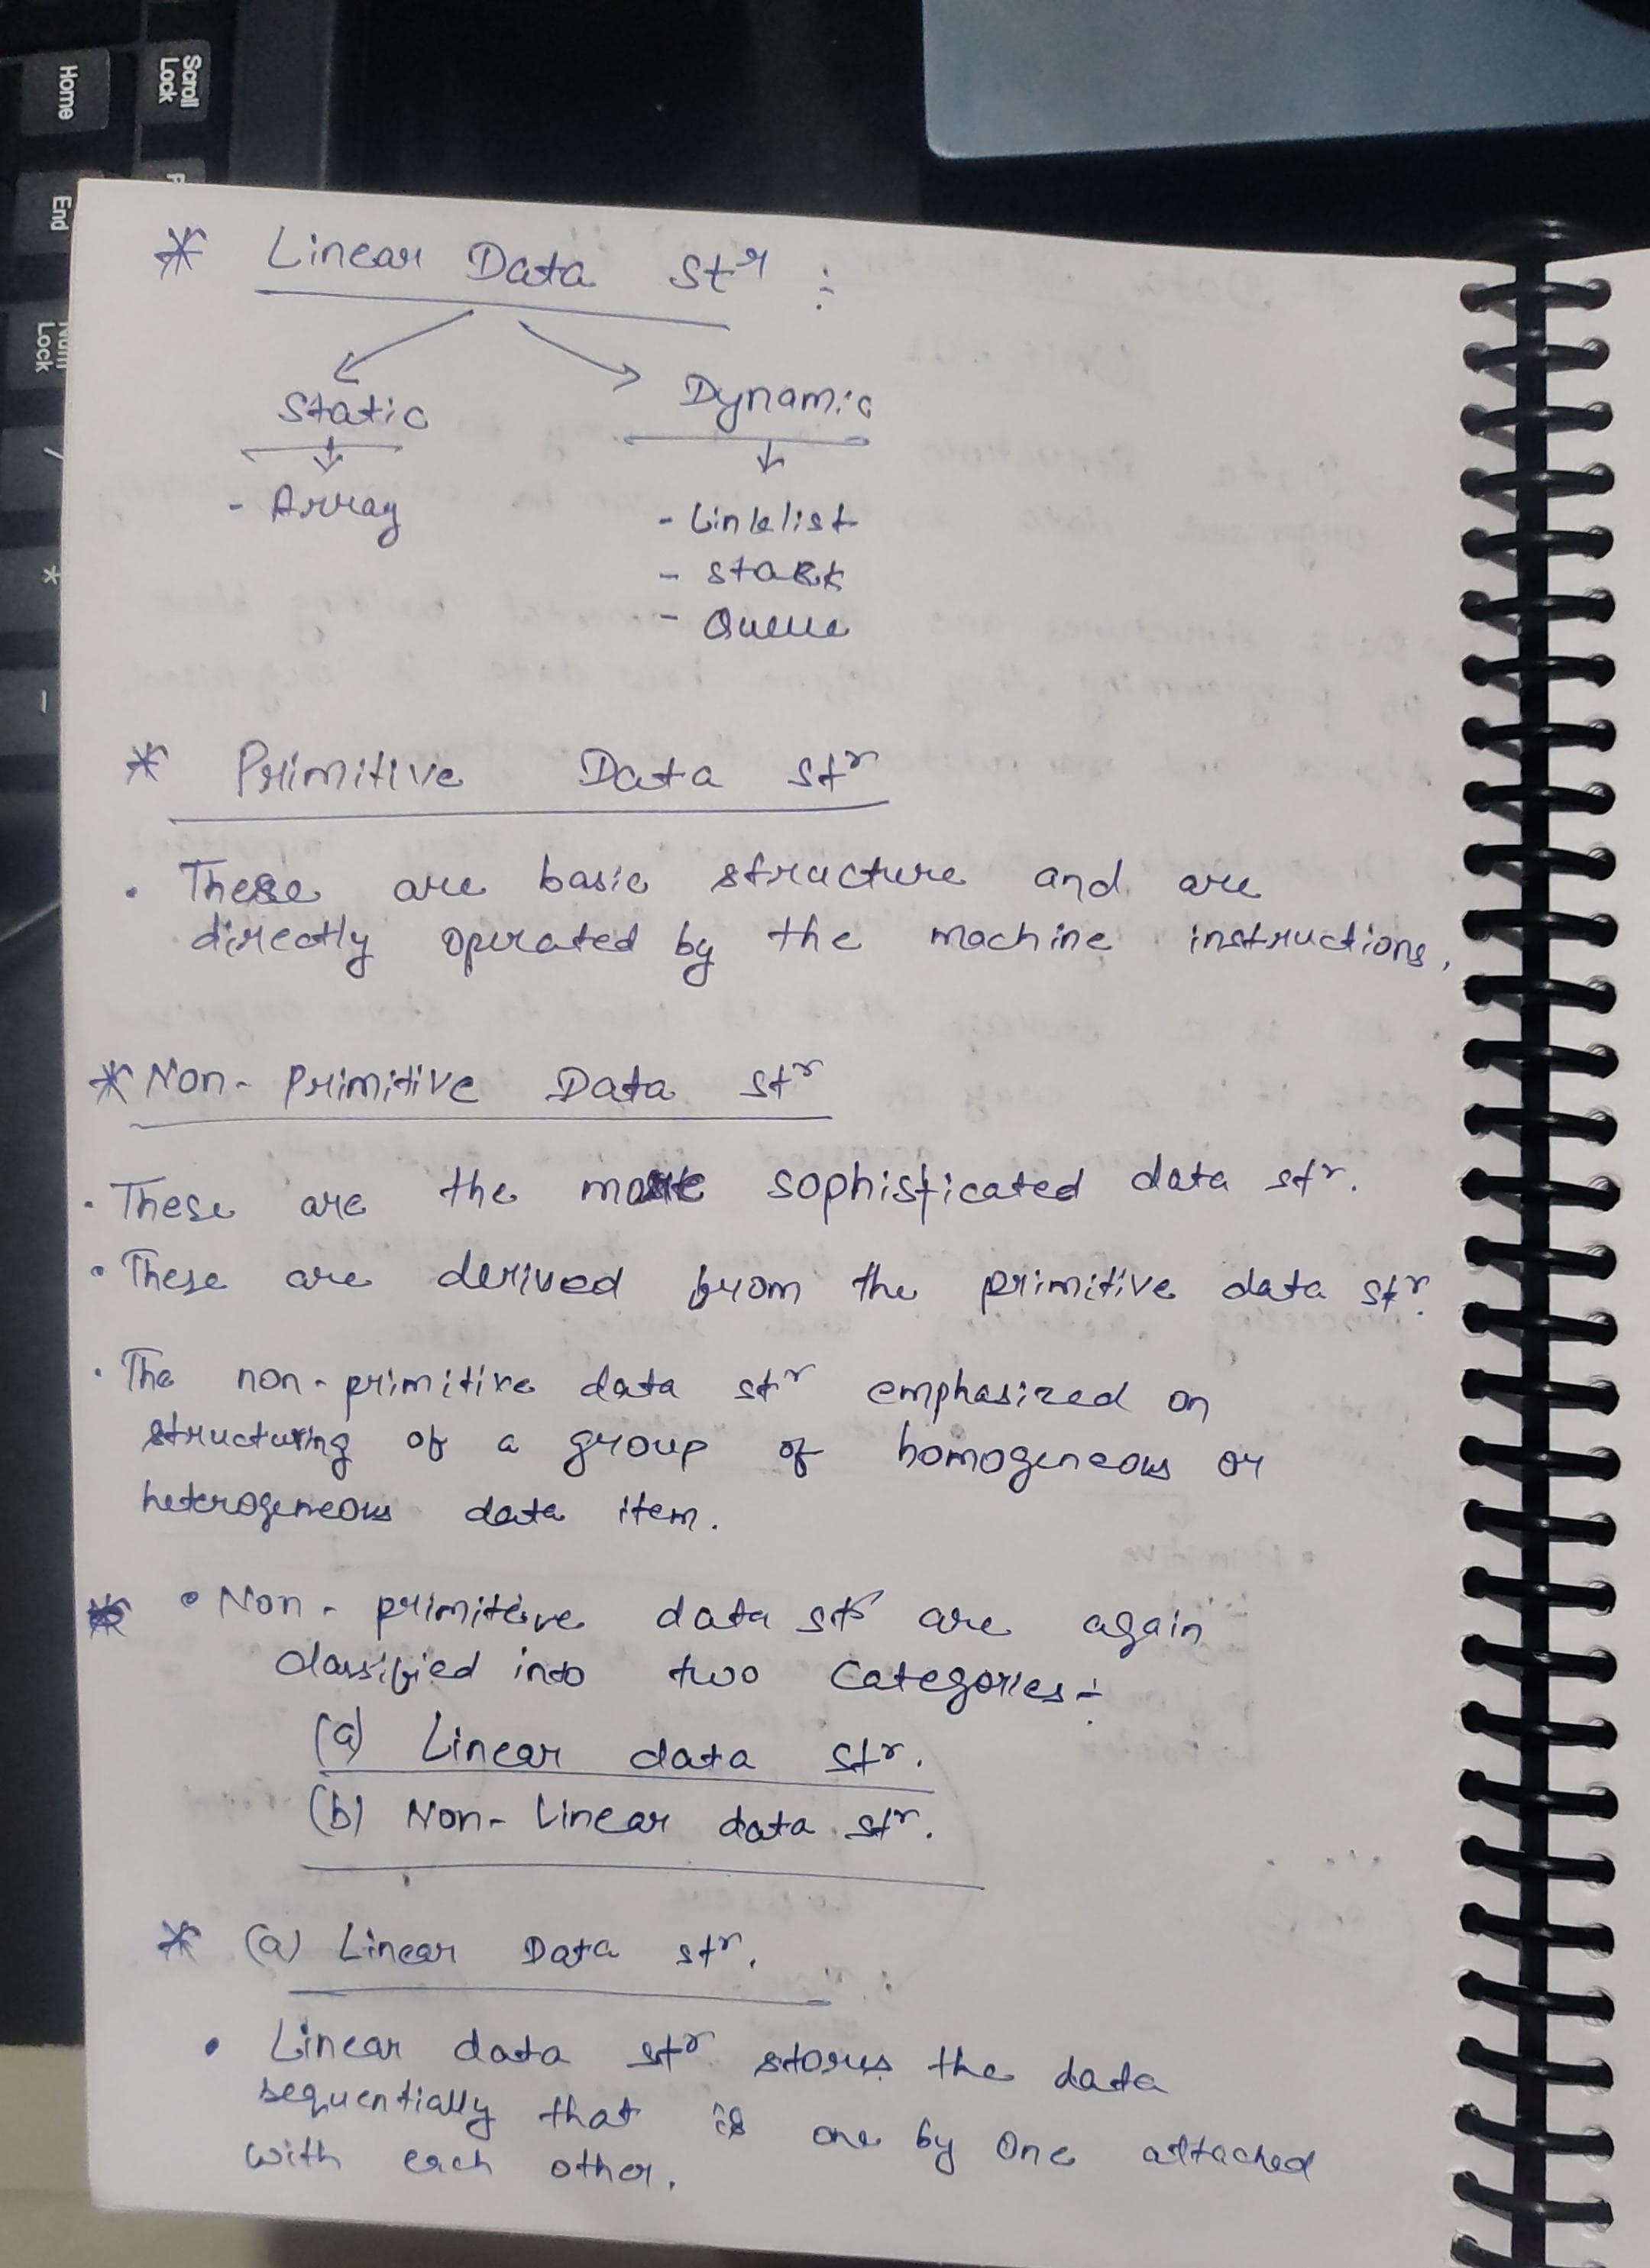 Scroll
Lock
Home
End
Num
Lock
/
*
-
* Linear Data stʳ :
Static Dynamic
- Array
- Linklist
- stack
- Queue
* Primitive Data stʳ
• These are basic structure and are
directly operated by the machine instructions.
* Non- Primitive Data stʳ
• These are the more sophisticated data stʳ.
• These are derived from the primitive data stʳ.
• The non-primitive data stʳ emphasized on
structuring of a group of homogeneous or
heterogeneous data item.
* • Non- primitive data stʳ are again
classified into two categories:-
(a) Linear data stʳ.
(b) Non- Linear data stʳ.
* (a) Linear Data stʳ.
• Linear data stʳ stores the data
sequentially that is one by one attached
with each other.